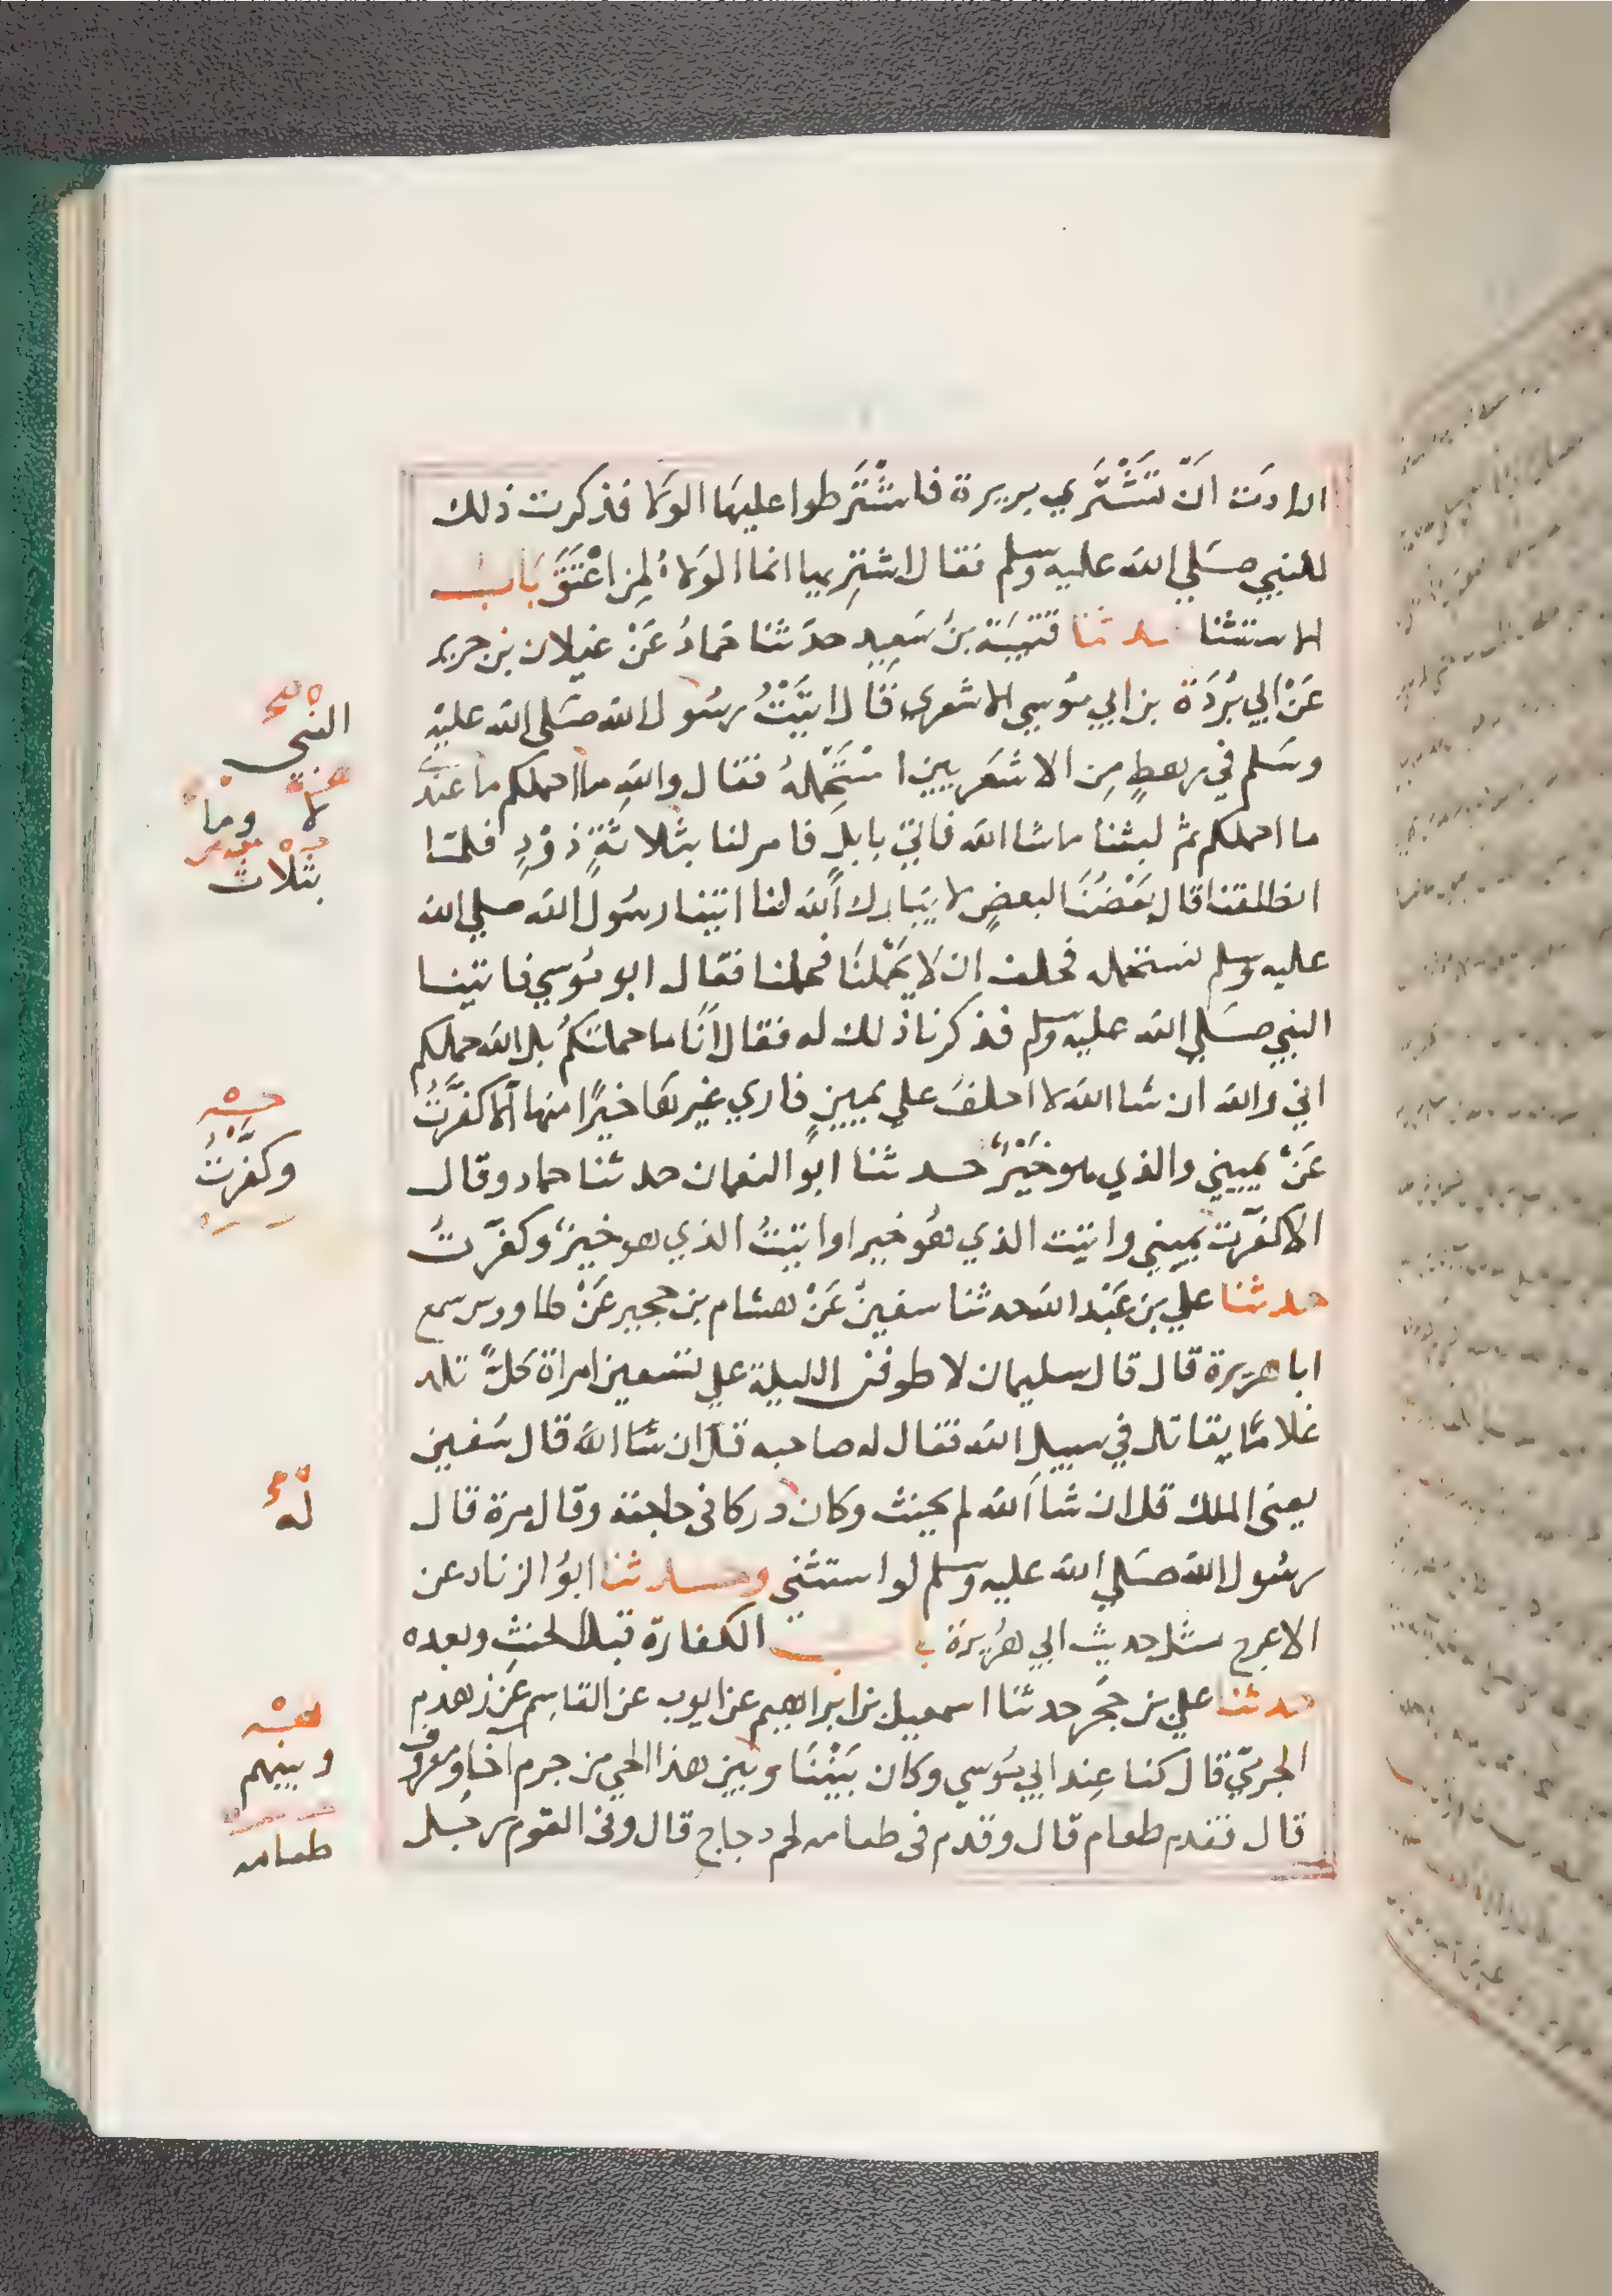 ارادت اَنّ تَشْتَري بريرة فاشْتَرطوا عليهَا الوَلا فذكرت ذلك
للنبي صَلي الله عليه وسلم فقال اشترِيها انما الوَلاءُ لمِن اعْتَقَ بَابُ
الاستثنا حدثنا قتيبَة بنُ سَعِيدٍ حدثنا حمادُ عَنْ غيلان بن جرير
عَنْ ابي بُرْدَة بن ابي مُوسي الاشعري قَال اتيَتُ رسُول الله صَلي الله عليْهِ
وسَلم في رهطٍ مِن الاشعَريين اسْتَحْملهُ فقال واللهِ ما احملكم ما عندي
ما احملكم ثم لبثنا ماشا الله فاتي بابلٍ فامر لنا بثلاثةِ ذوْدٍ فلمّا
انطلقنا قال بَعْضُنَا لبعضٍ لا يبَارك اَلله لنا اتينا رسُول الله صلي الله
عليه وسلم نستحمله فحلف ان لَا يَحْملنَا فحملنا فقال ابو مُوسي فاتينا
النبي صَلي الله عليه وسلم فذكرنا ذلك له فقال اَنَا ما حملتكمُ بل الله حملكم
اني والله ان شا الله لا احلفُ علي يمينٍ فاري غيرهَا خيرًا منها الا كفَّرْتُ
عَنْ يميني والذي هو خَيْرٌ حدثنا ابو النعمان حدثنا حماد وقال
الا كفّرت يَميني واتيت الذي هُو خير او اتيتُ الذي هو خيرٌ وكفّرتُ
حدثنا علي بن عَبْد الله حدثنا سفينُ عَنْ هشام بن حجير عَنْ طاووس سمع
ابا هريرة قال قال سليمان لاطوفن الليلة علي تسعين امراة كلٌّ تلد
غلامًا يقاتل في سبيل الله فقال له صاحبه قل ان شا الله قال سُفين
يعني الملك قل ان شا اَلله لم يحنث وكان دركا في حاجته وقال مرة قال
رسُول الله صَلي الله عليه وسلم لو استثني وحدثنا ابوُ الزناد عن
الاعرج مثل حديث ابي هُريرَة باب الكفارة قبل الحنثِ وبعده
حدثنا علي بن حجر حدثنا اسمعيل بن ابراهيم عن ايوب عن القاسِم عَن زهدم
الجرميّ قال كنا عِند ابي مُوسي وكان بَيْننَا وبين هذا الحي من جرم اخا ومعروف
قال فقدم طعام قال وقدم في طعامه لحم دجاج قال وفي القوم رجل
النبي
لا وما
بثلاث
وكفَّرتُ
له
وبينهم
طعامه